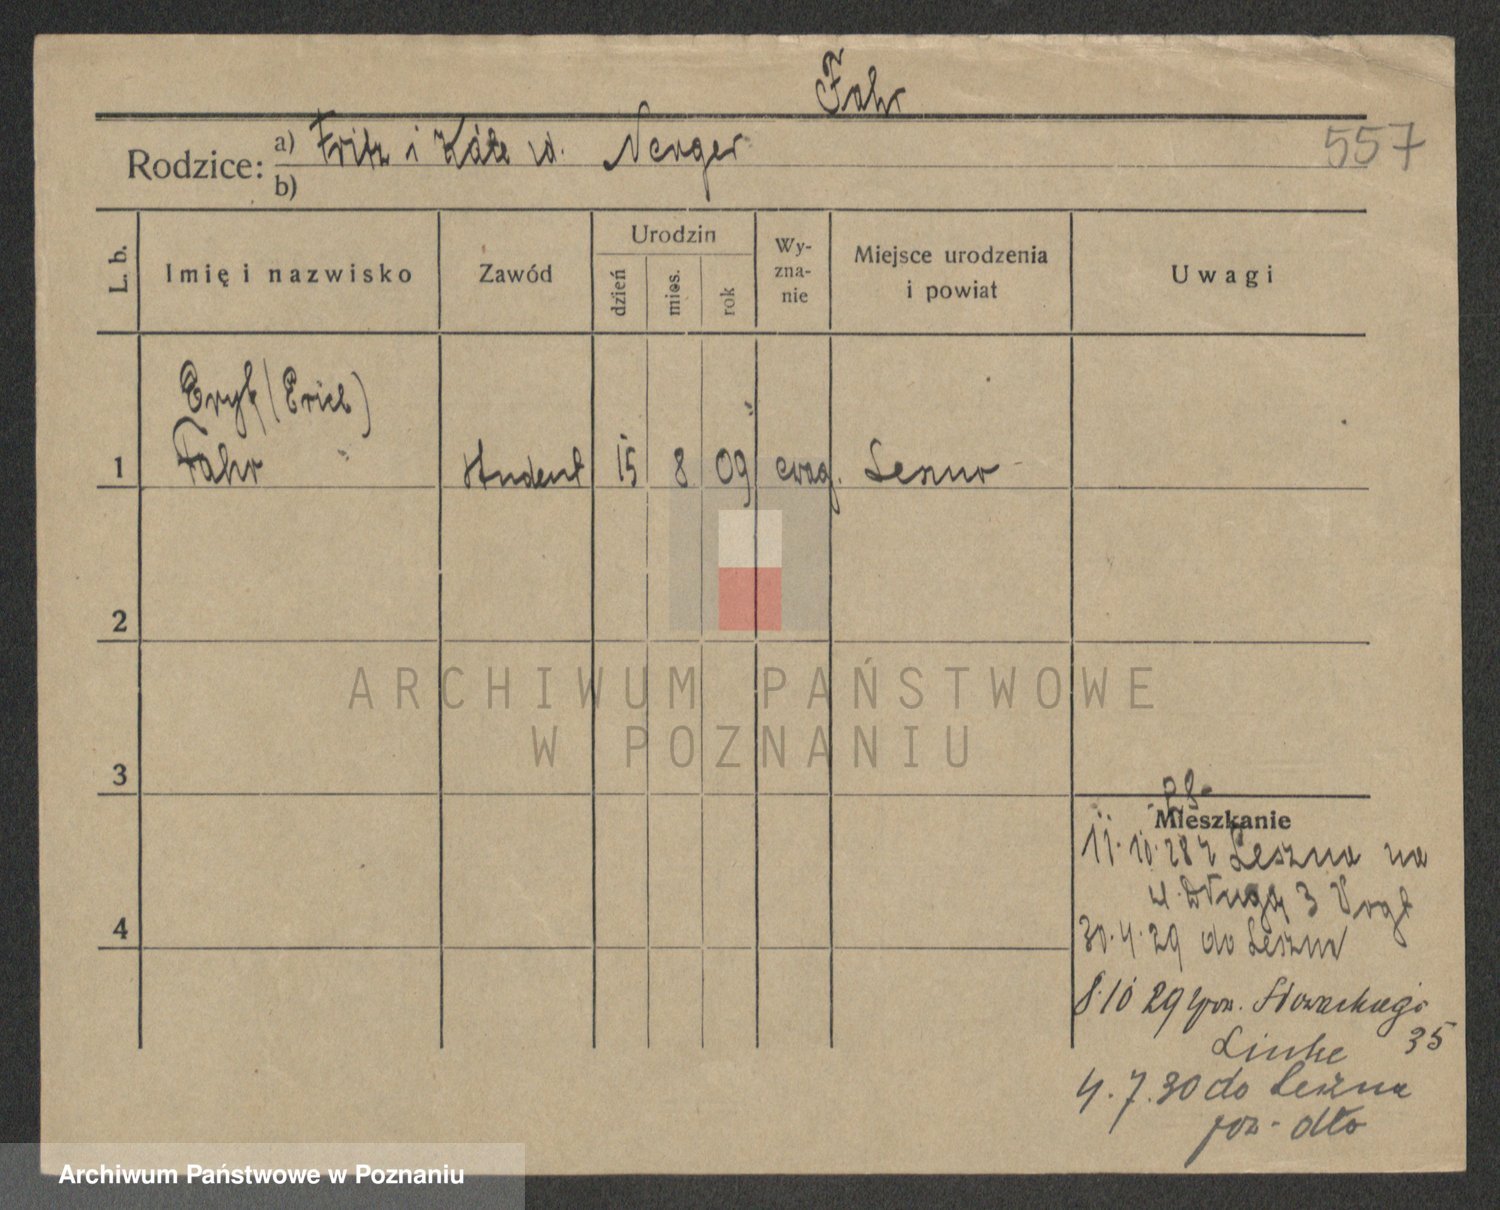 Fahr
557
Rodzice: a) Fritz i Käte d. Nerger
b)
L. b.
Imię i nazwisko
Zawód
Urodzin
dzień
mies.
rok
Wy-
zna-
nie
Miejsce urodzenia
i powiat
Uwagi
Eryk (Erich)
1 Fahr student 15 8 09 ewag. Leszno
2
ARCHIWUM PAŃSTWOWE
W POZNANIU
3
Mieszkanie
11.10.28 z Leszna na
ul. Długą 3 Vogt
4
30.4.29 do Leszna
8.10 29 Słowackiego
35
Linke
4.7.30 do Leszna
Archiwum Państwowe w Poznaniu